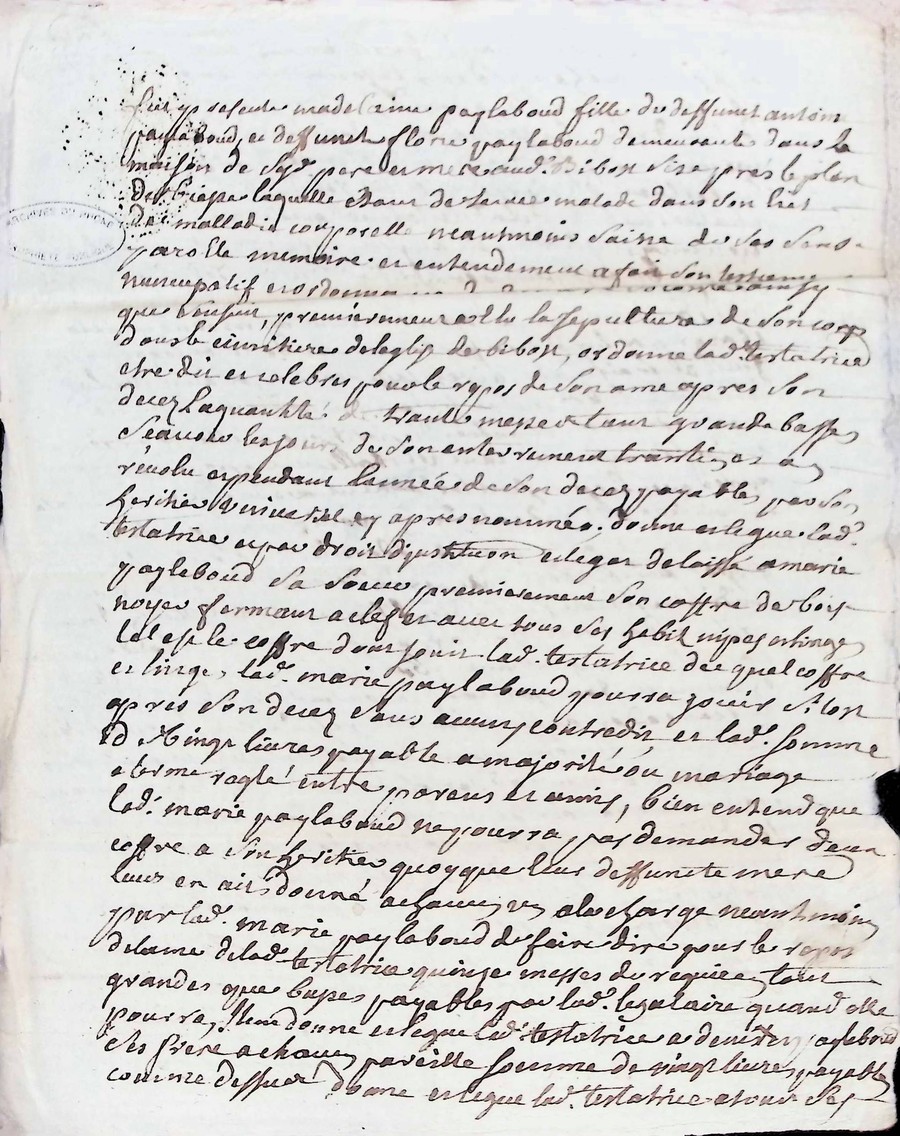 fut presente madelaine paylaboud fille de deffunct antoine
paylaboud, et deffuncte florie paylaboud demeurante dans la
maison de sesd. pere et mere aud. Bibost size pres le plan
de laquelle etant detenue malade dans son lict
de malladie corporelle neantmoins saine de ses sens
parolle memoire et entendement a fait son testament
nuncupatif et ordonnance de
que sensuit, premierement a elu la sepulture de son corps
dans le cimitiere de leglise de bibost, ordonne lad. testatrice
etre dit et celebres pour le repos de son ame apres son
decez la quantité de trante messes tant grande basses
scavoir le jour de son enterrement trantiesme et an
revolu et pendant l'année de son decez payables par son
heritier universel cy apres nommé, donne et legue lad.
testatrice et par droit d'institution et leget delaissé a marie
paylaboud sa soeur premierement son coffre de bois
noyer fermant a clef et avec tous ses habit nipes et linges
tel est le coffre dont jouit lad. testatrice de quel coffre
et linges lad. marie paylaboud pourra jouir sitot
apres son decez sans aucun contredit, et lad. somme
de vingt livres payable a majorité ou mariage
a terme raglé entre parens et amis, bien entend que
lad. marie paylaboud ne pourra pas demander d'eun
coffre a son heritier quoyque leur deffuncte mere
leurs en ait donné a chacun un a la charge neantmoins
par lad. marie paylaboud de faire dire pour le repos
de lame de lad. testatrice quinze messes de requiee tant
grandes que basses payables par lad. legataire quand elle
pourra, Item donne et legue lad. testatrice a paylaboud
ses frere a chacun pareille somme de vingt livres payable
comme dessus donne et legue lad. testatrice a tous ses